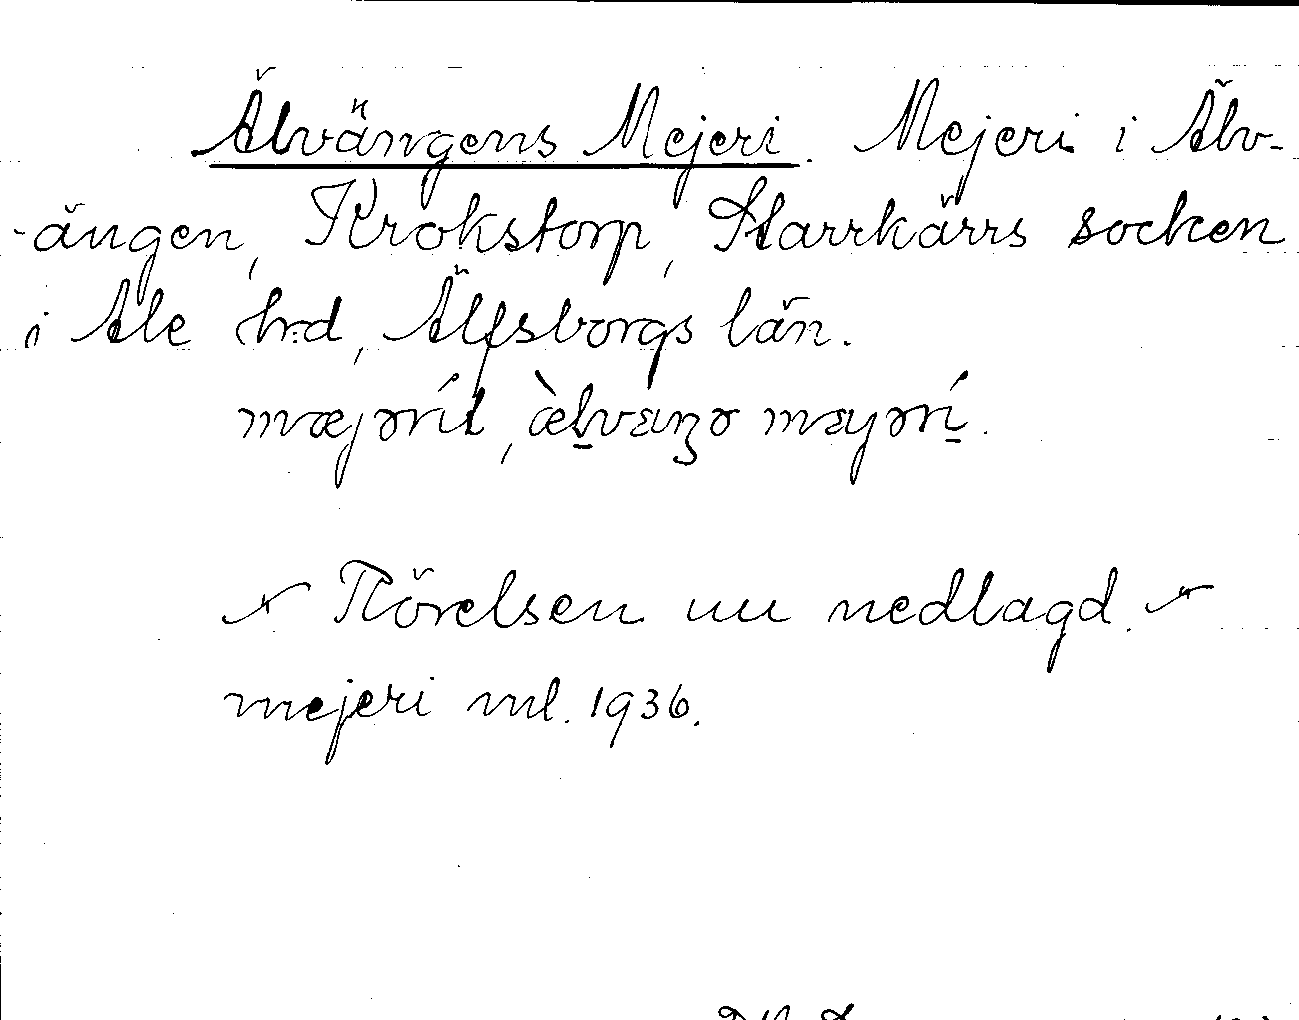 Älvängens Mejeri. Mejeri i Älv-
-ängen, Krokstorp, Starrkärrs socken
i Ale hrd, Älfsborgs län.
Rörelsen nu nedlagd.
mejeri ml. 1936.